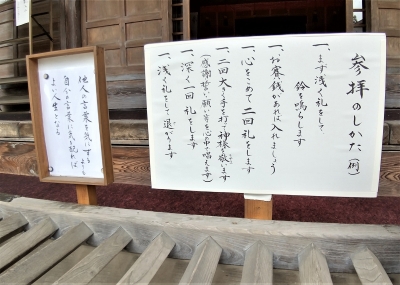 参拝のしかた(例)
一、まず浅く礼をして、
鈴を鳴らします
一、お賽銭があれば入れましょう
一、心をこめて二回礼をします
一、二回大きく手を打ち神様を敬います
(感謝、誓い、願い等を心の中で唱えます)
一、深く一回礼をします
一、浅く礼をして退がります
他人の言葉を気にするより
自分の言葉に気を配れば
よい人生となる